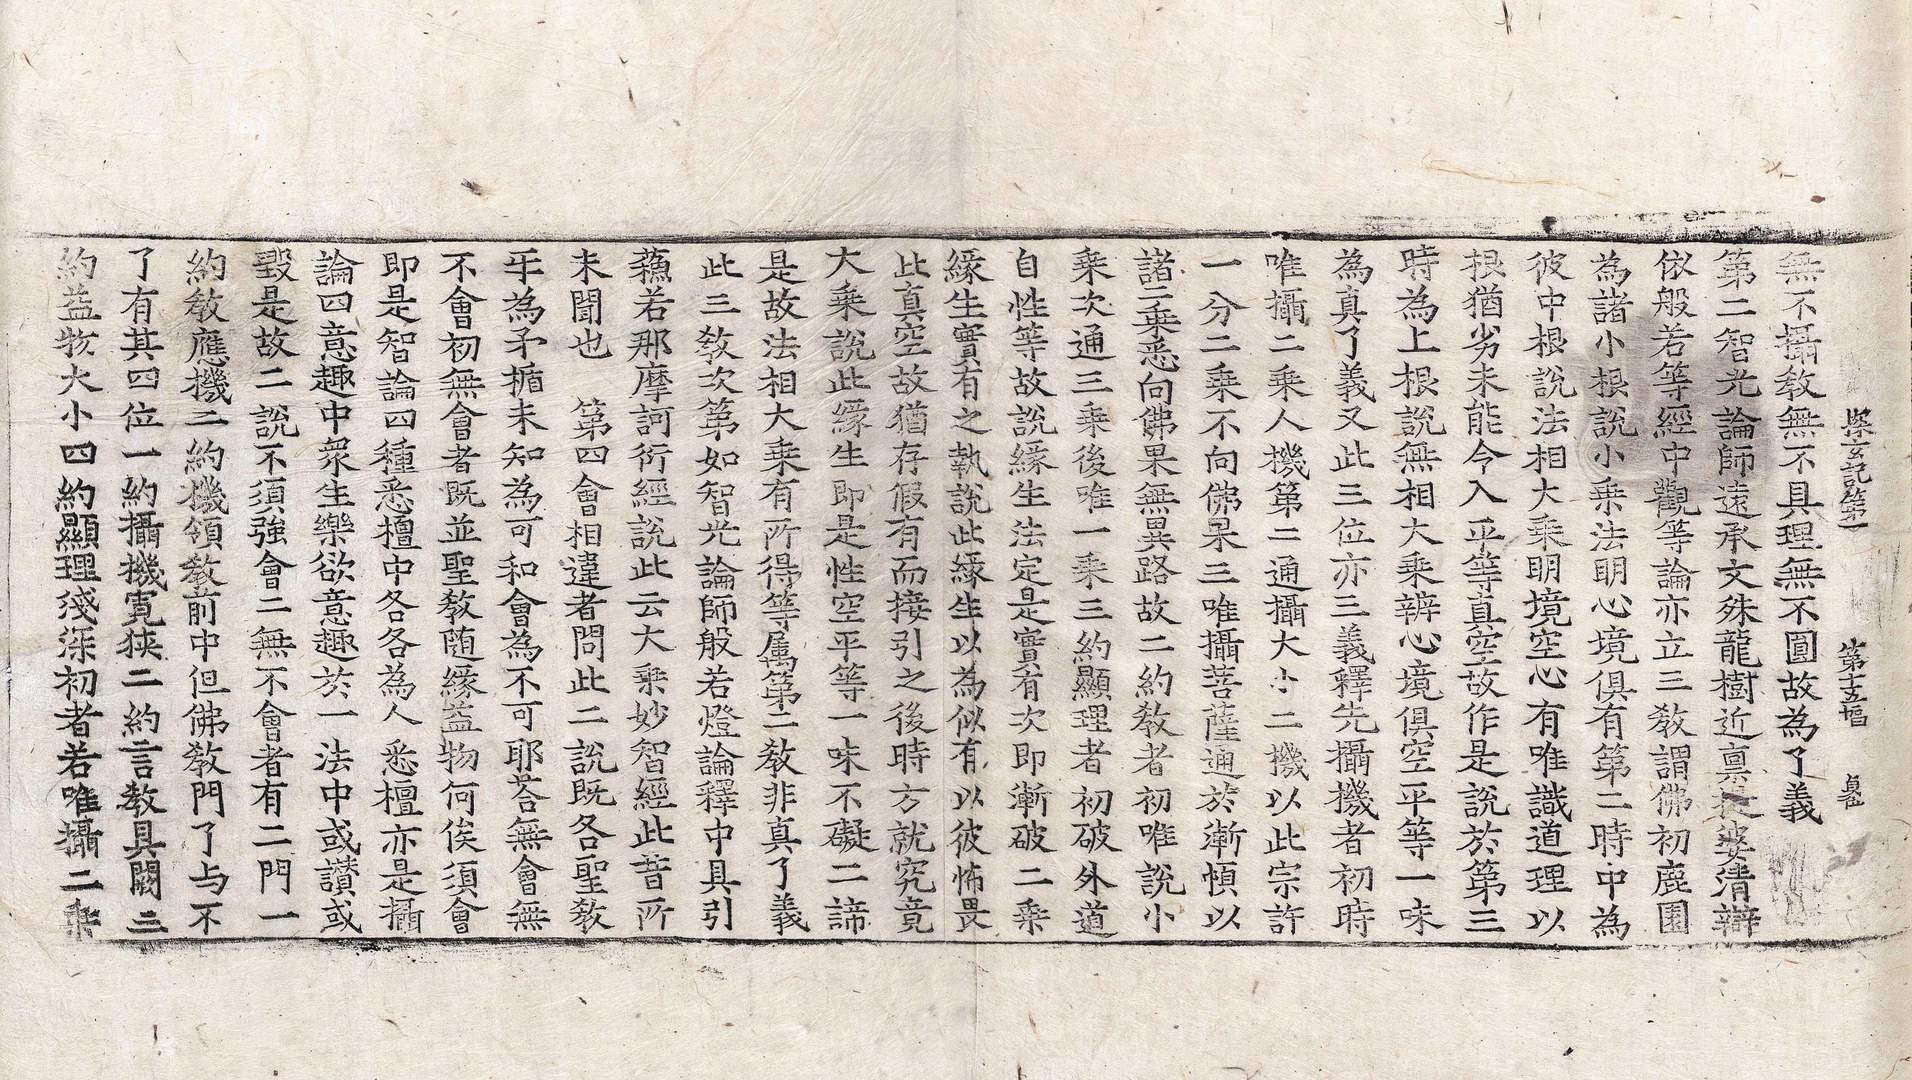 樂玄記第一 第十五幅
無不攝教無不具理無不圓故為了義
第二智光論師遠承文殊龍樹近稟提婆清辯
依般若等經中觀等論亦立三教謂佛初鹿園
為諸小根說小乘法明心境俱有第二時中為
彼中根說法相大乘明境空心有唯識道理以
根猶劣未能令入平等真空故作是說於第三
時為上根說無相大乘辨心境俱空平等一味
為真了義又此三位亦三義釋先攝機者初時
唯攝二乘人機第二通攝大小二機以此宗許
一分二乘不向佛果三唯攝菩薩通於漸慎以
諸二乘悉向佛果無異路故二約教者初唯說小
乘次通三乘後唯一乘三約顯理者初破外道
自性等故說緣生法定是實有次即漸破二乘
緣生實有之執說此緣生以為似有以彼怖畏
此真空故猶存假有而接引之後時方就究竟
大乘說此緣生即是性空平等一味不礙二諦
是故法相大乘有所得等属第二教非真了義
此三教次第如智光論師般若燈論釋中具引
蘓若那摩訶衍經說此云大乘妙智經此昔所
未聞也 第四會相違者問此二說既各聖教
乎為矛楯未知為可和會為不可耶荅無會無
不會初無會者既並聖教随緣益物何俟須會
即是智論四種悉檀中各各為人悉檀亦是攝
論四意趣中衆生樂欲意趣於一法中或讃或
毀是故二說不須強會二無不會者有二門一
約教應機二約機領教前中但佛教門了与不
了有其四位一約攝機寬狹二約言教具闕三
約益物大小四約顯理淺深初者若唯攝二乘